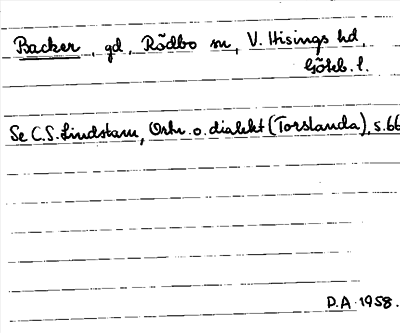 Backer, gd, Rödbo sn, V. Hisings hd,
Göteb. l.
Se C.S. Lindstam, Ortn. o. dialekt (Torslanda), s. 66
D.A. 1958.